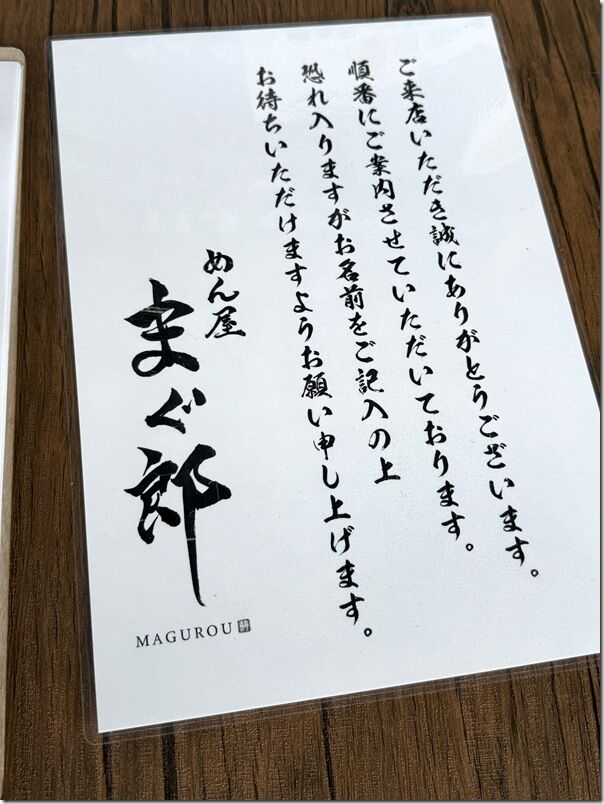 ご来店いただき誠にありがとうございます。
順番にご案内させていただいております。
恐れ入りますがお名前をご記入の上
お待ちいただけますようお願い申し上げます。
めん屋
まぐ郎
MAGUROU